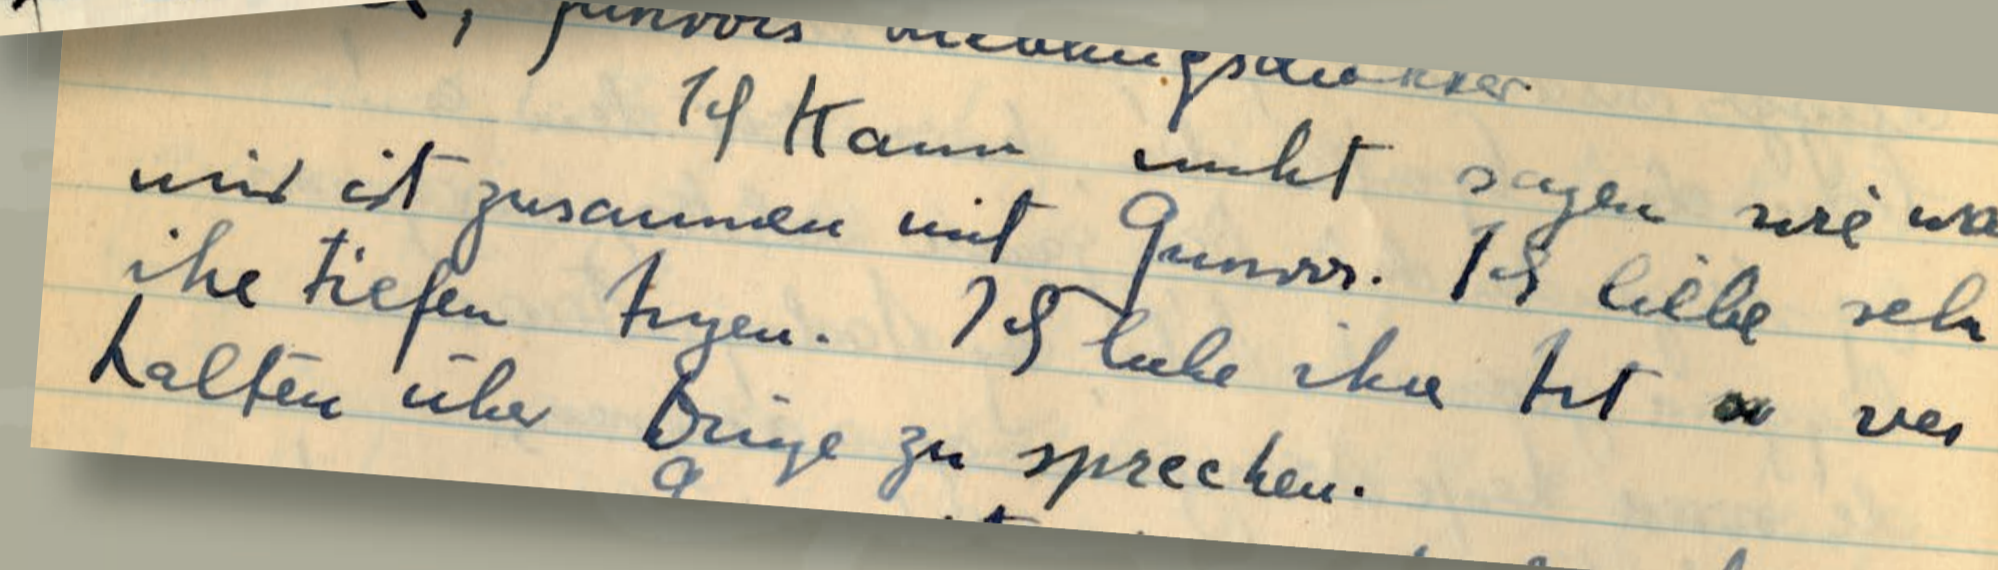 Gunvors Lieblingsdichter
Ich kann nicht sagen wie
mir ist zusammen mit Gunvor. Ich liebe sehr
ihre tiefen Augen. Ich liebe ihre Art ver
halten über Dinge zu sprechen.